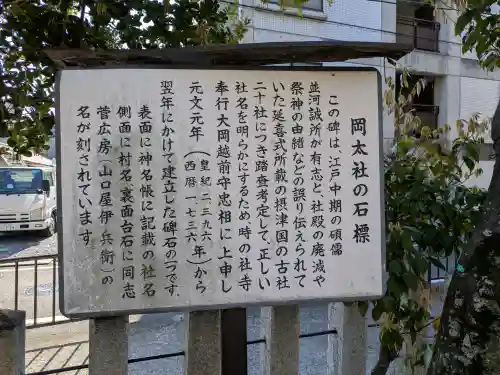 岡太社の石標
この碑は、江戸中期の碩儒
並河誠所が有志と社殿の廃滅や
祭神の由緒などの誤り伝えられて
いた延喜式所載の摂津国の古社
二十社につき踏査考定して、正しい
社名を明らかにするため、時の社寺
奉行大岡越前守忠相に上申し
元文元年(皇紀二三九六年 西暦一七三六)から
翌年にかけて建立した碑石の一つです。
表面に神名帳に記載の社名
側面に村名、裏面台石に同志
菅広房(山口屋伊兵衛)の
名が刻されています。